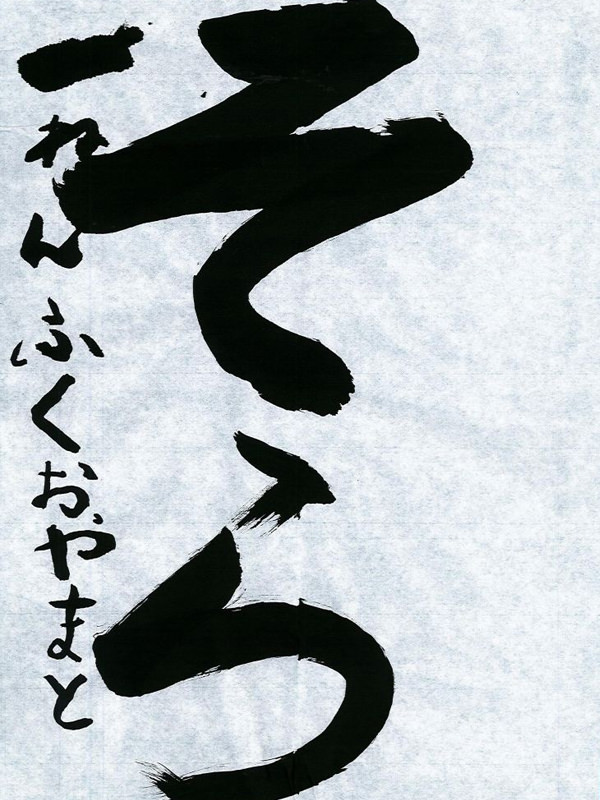 そら
一ねんふくおやまと